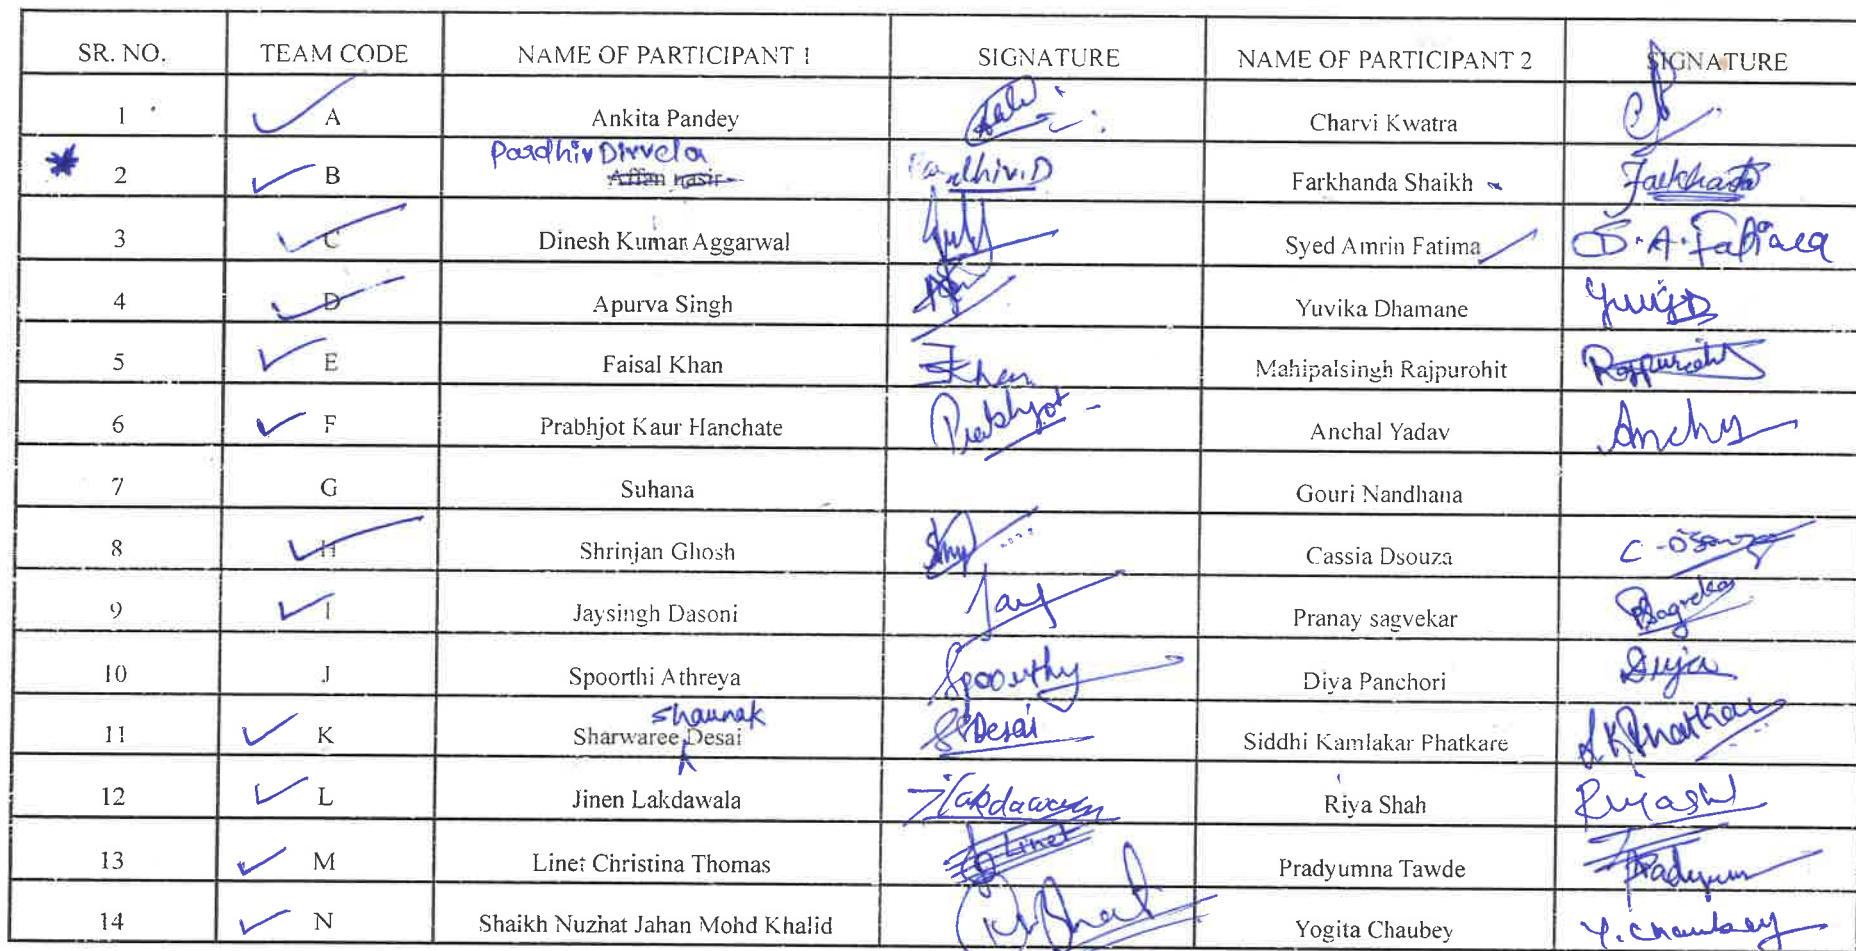 SR. NO. TEAM CODE NAME OF PARTICIPANT 1 SIGNATURE NAME OF PARTICIPANT 2 SIGNATURE
1 A Ankita Pandey Charvi Kwatra
Pardhiv Dirvela
2 B Affan nasir Pardhiv.D Farkhanda Shaikh Farkhanda
3 C Dinesh Kumar Aggarwal Syed Amrin Fatima S.A.Fatima
4 D Apurva Singh Yuvika Dhamane
5 E Faisal Khan Khan Mahipalsingh Rajpurohit Rajpurohit
6 F Prabhjot Kaur Hanchate Prabhjot Anchal Yadav
7 G Suhana Gouri Nandhana
8 H Shrinjan Ghosh Cassia Dsouza
9 I Jaysingh Dasoni Jay Pranay sagvekar
10 J Spoorthi Athreya Spoorthy Diya Panchori
shaunak
11 K Sharwaree Desai SDesai Siddhi Kamlakar Phatkare
12 L Jinen Lakdawala Riya Shah
13 M Linet Christina Thomas Linet Pradyumna Tawde
14 N Shaikh Nuzhat Jahan Mohd Khalid Yogita Chaubey Y. Chaubey